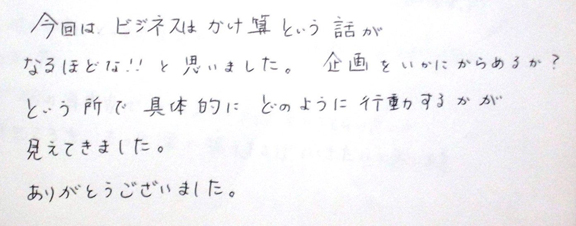 今回は、ビジネスはかけ算という話が
なるほどな!!と思いました。 企画をいかにからめるか?
という所で具体的にどのように行動するかが
見えてきました。
ありがとうございました。